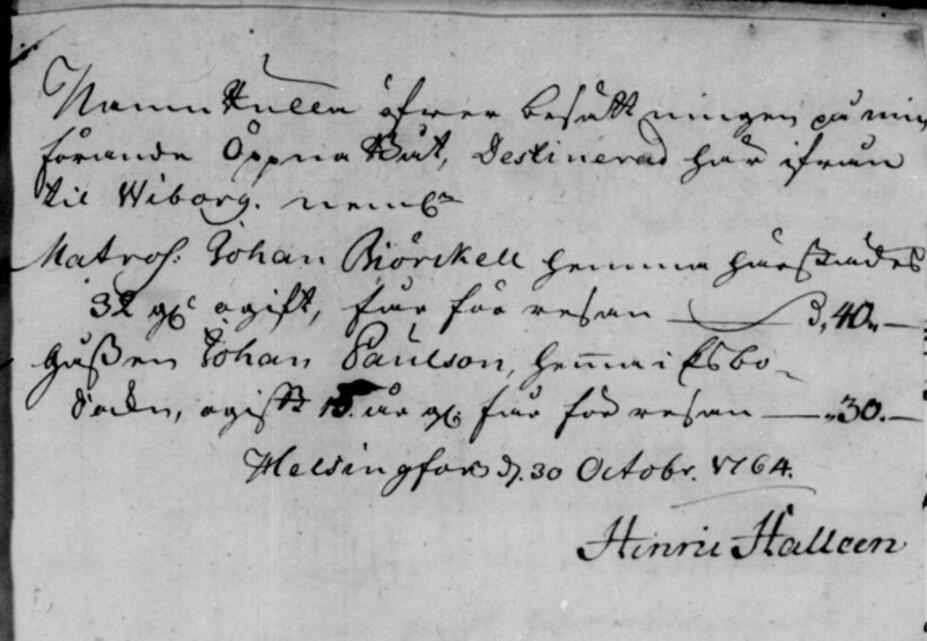 Namn Rulla öfwer besättningen på min
förande Öppna Båt, Destinerad här ifrån
til Wiborg. neml:n
Matros: Johan Biörckell hemma härstädes
32 g: ogift, får för resan — d, 40„ —
Gåssen Johan Paulson, hema i Esbo
Sokn, ogift 15. år g: får för resan — „30. —
Helsingfors d. 30 Octobr. 1764.
Henric Halleen